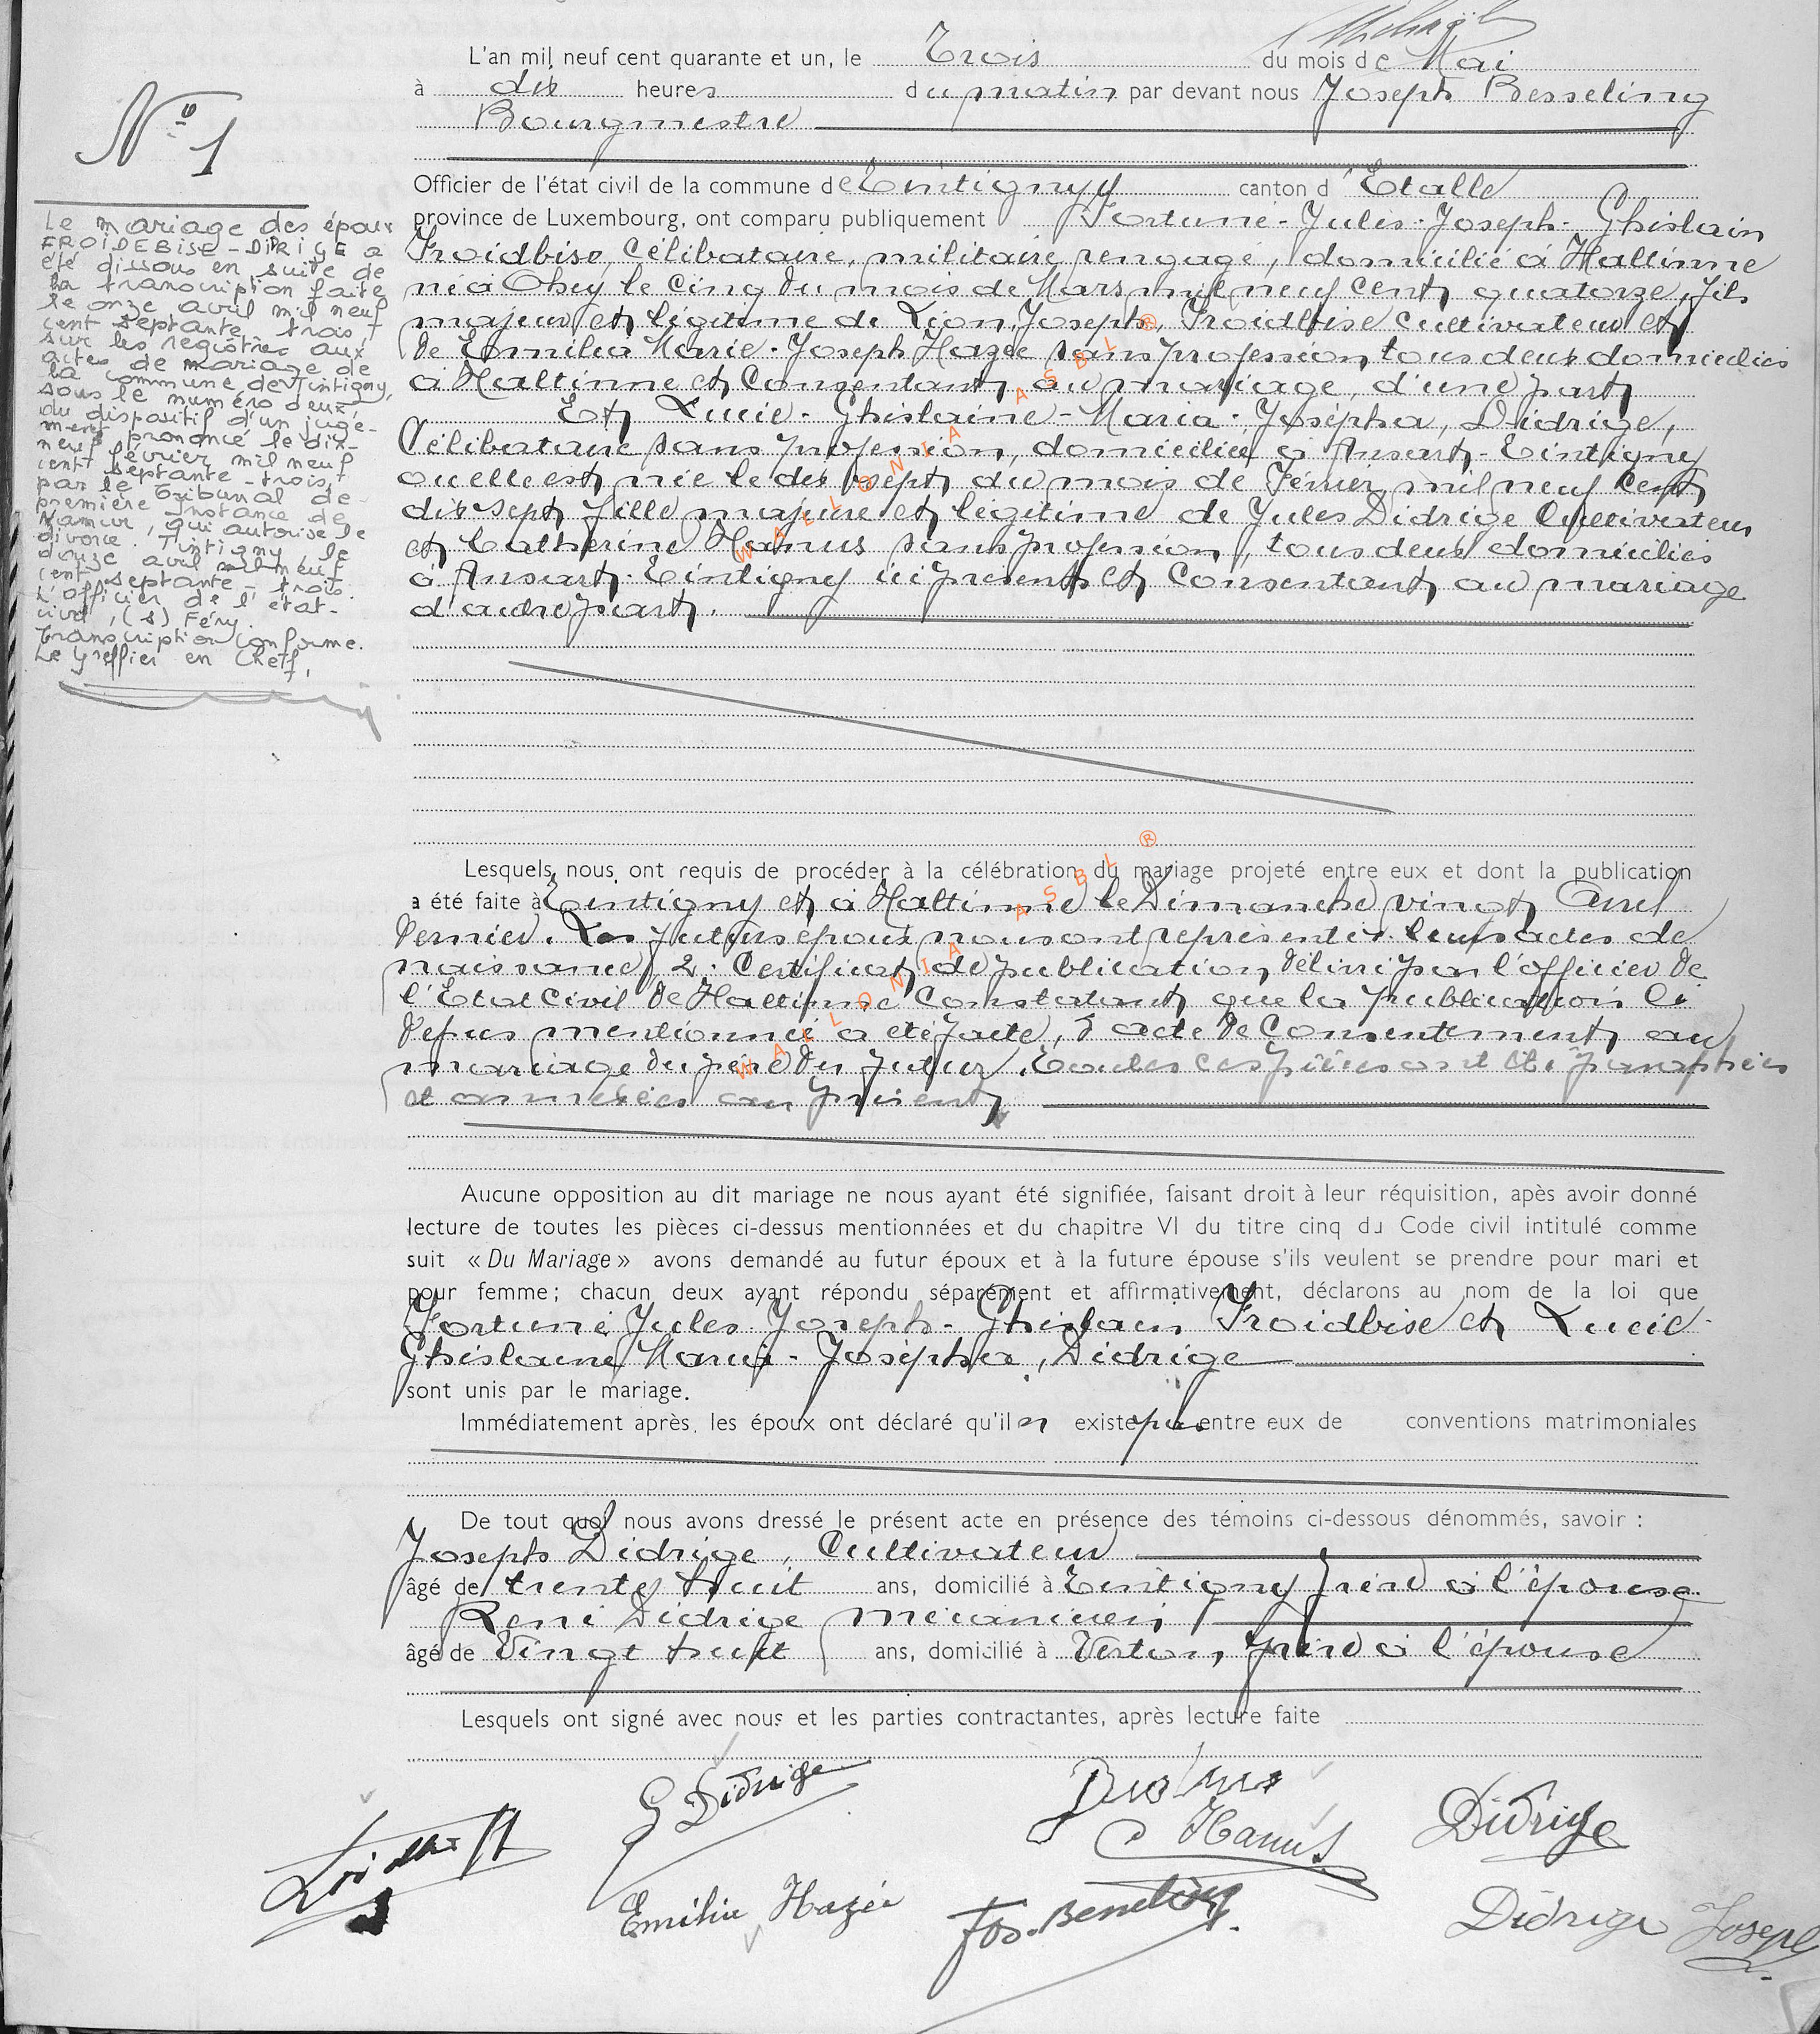 L'an mil neuf cent quarante et un, le Trois du mois de Mai
à dix heures du matin par devant nous Joseph Besseling
Bourgmestre
N° 1
Officier de l'état civil de la commune de Tintigny canton d'Etalle
province de Luxembourg, ont comparu publiquement Fortuné-Jules-Joseph-Ghislain
Froidbise, célibataire, militaire rengagé, domicilié à Haltinne
né à Ohey le cinq du mois de Mars mil neuf cent quatorze, fils
majeur et légitime de Léon, Joseph, Froidbise cultivateur et
de Emilia Marie-Joseph Hazée sans profession, tous deux domiciliés
à Haltinne et consentant au mariage, d'une part
Et Lucie-Ghislaine-Maria-Josépha, Didrige,
Célibataire sans profession, domiciliée à Ansart-Tintigny
où elle est née le dix sept du mois de Février mil neuf cent
dix-sept fille majeure et légitime de Jules Didrige Cultivateur
et Catherine Hanus sans profession, tous deux domiciliés
à Ansart-Tintigny ici présents et consentant au mariage
d'autre part.
Le mariage des époux
FROIDEBISE-DIRIGE a
été dissous en suite de
la transcription faite
le onze avril mil neuf
cent septante trois,
sur les registres aux
actes de mariage de
la commune de Tintigny,
sous le numéro deux,
du dispositif d'un juge-
ment prononcé le dix-
neuf février mil neuf
cent septante-trois,
par le Tribunal de
première Instance de
Namur, qui autorise le
divorce. Tintigny, le
douze avril mil neuf
cent septante-trois.
L'officier de l'état-
civil, (s) Féry.
Transcription conforme.
Le Greffier en Chef,
Lesquels nous ont requis de procéder à la célébration du mariage projeté entre eux et dont la publication
a été faite à Tintigny et à Haltinne le Dimanche vingt Avril
dernier. Les futurs époux nous ont représenté leurs actes de
naissance, 2. Certificat de publication délivré par l'officier de
l'Etat Civil de Haltinne constatant que la publication ci
depus mentionnée a été faite, 3 acte de consentement au
mariage du père du futur. Toutes ces pièces ont été paraphées
et annexées au présent
Aucune opposition au dit mariage ne nous ayant été signifiée, faisant droit à leur réquisition, apès avoir donné
lecture de toutes les pièces ci-dessus mentionnées et du chapitre VI du titre cinq du Code civil intitulé comme
suit « Du Mariage » avons demandé au futur époux et à la future épouse s'ils veulent se prendre pour mari et
pour femme; chacun deux ayant répondu séparément et affirmativement, déclarons au nom de la loi que
Fortuné Jules Joseph-Ghislain Froidbise et Lucie-
Ghislaine Maria-Josépha, Didrige
sont unis par le mariage.
Immédiatement après, les époux ont déclaré qu'il n existe pas entre eux de conventions matrimoniales
De tout quoi nous avons dressé le présent acte en présence des témoins ci-dessous dénommés, savoir :
Joseph Didrige, Cultivateur
âgé de trente huit ans, domicilié à Tintigny frère à l'épouse
René Didrige mécanicien
âgé de Vingt huit ans, domicilié à Virton, frère à l'épouse
Lesquels ont signé avec nous et les parties contractantes, après lecture faite
Didrige
C Hanus
Didrige
Emilia Hazée
Jos. Besseling
Didrige Joseph
WALLONIA ASBL ®
WALLONIA ASBL ®